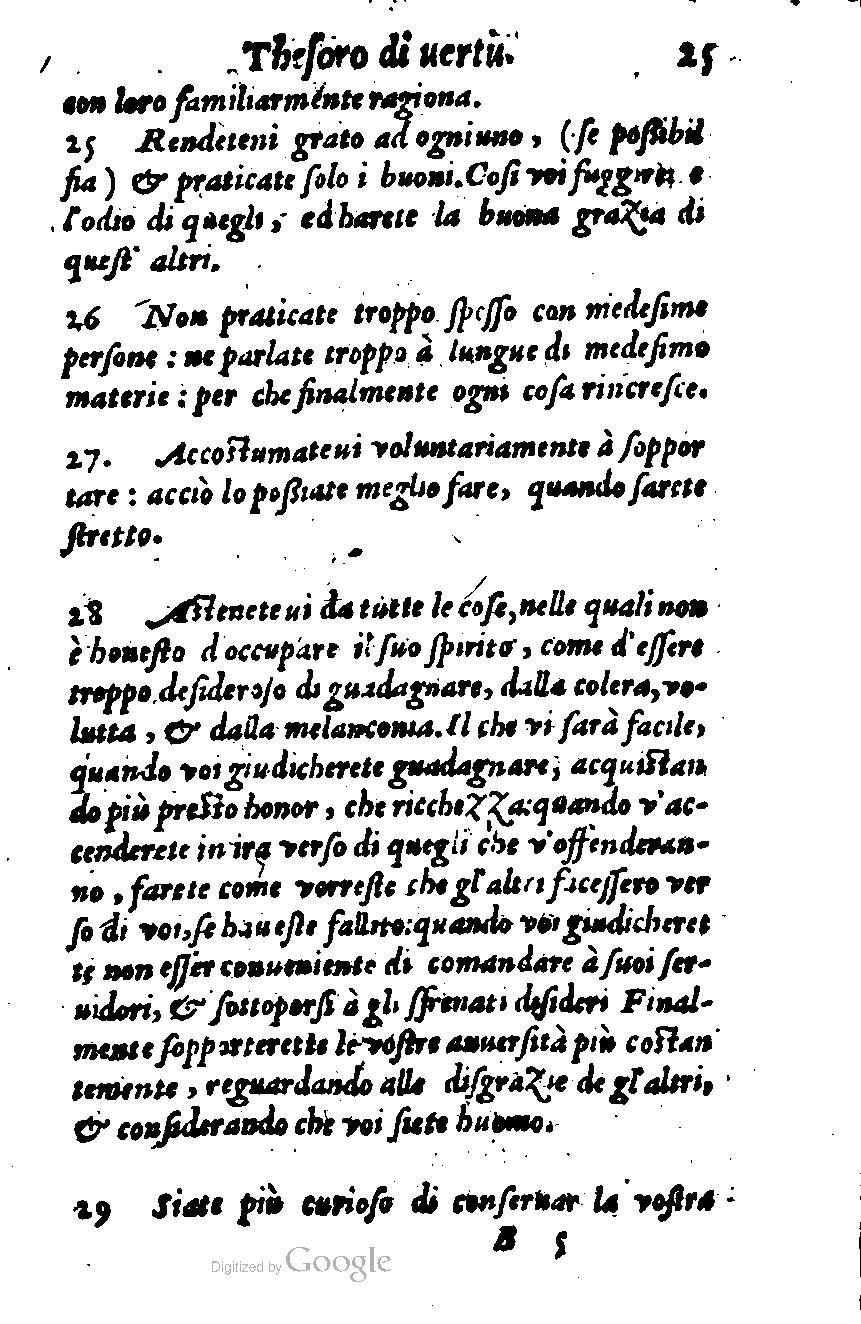 Theſoro di uertù. 25
con loro familiarmẽnte ragiona.
25 Rendeteni grato ad ogniuno, (ſe poſſibil
ſia) & praticate ſolo i buoni.Coſi voi fuggirete
l'odio di quegli, ed harete la buona grazia di
queſt' altri.
26 Non praticate troppo ſpeſſo con medeſime
perſone : ne parlate troppo à lungue di medeſimo
materie : per che finalmente ogni coſa rincreſce.
27. Accoſtumateui voluntariamente à ſoppor
tare : acciò lo poſſiate meglio fare, quando ſarete
ſtretto.
28 Aſteneteui da tutte le coſe,nelle quali non
è honeſto d occupare il ſuo ſpirito, come d'eſſere
troppo deſideroſo di guadagnare, dalla colera,vo-
lutta, & dalla melanconia.Il che vi ſarà facile,
quando voi giudicherete guadagnare, acquiſtan
do più preſto honor, che ricchezza:quando v'ac-
cenderete in ira verſo di quegli che v'offenderan-
no, farete come vorreſte che gl'altri faceſſero ver
ſo di voi,ſe haueſte fallito:quando voi giudicheret
te non eſſer conueniente di comandare à ſuoi ſer-
uidori, & ſottoporſi à gli ſfrenati deſideri Final-
mente ſopporterette le voſtre auuerſità più coſtan
temente, reguardando alle diſgrazie de gl'altri,
& conſiderando che voi ſiete huomo.
29 Siate più curioſo di conſeruar la voſtra
B 5
Digitized by Google